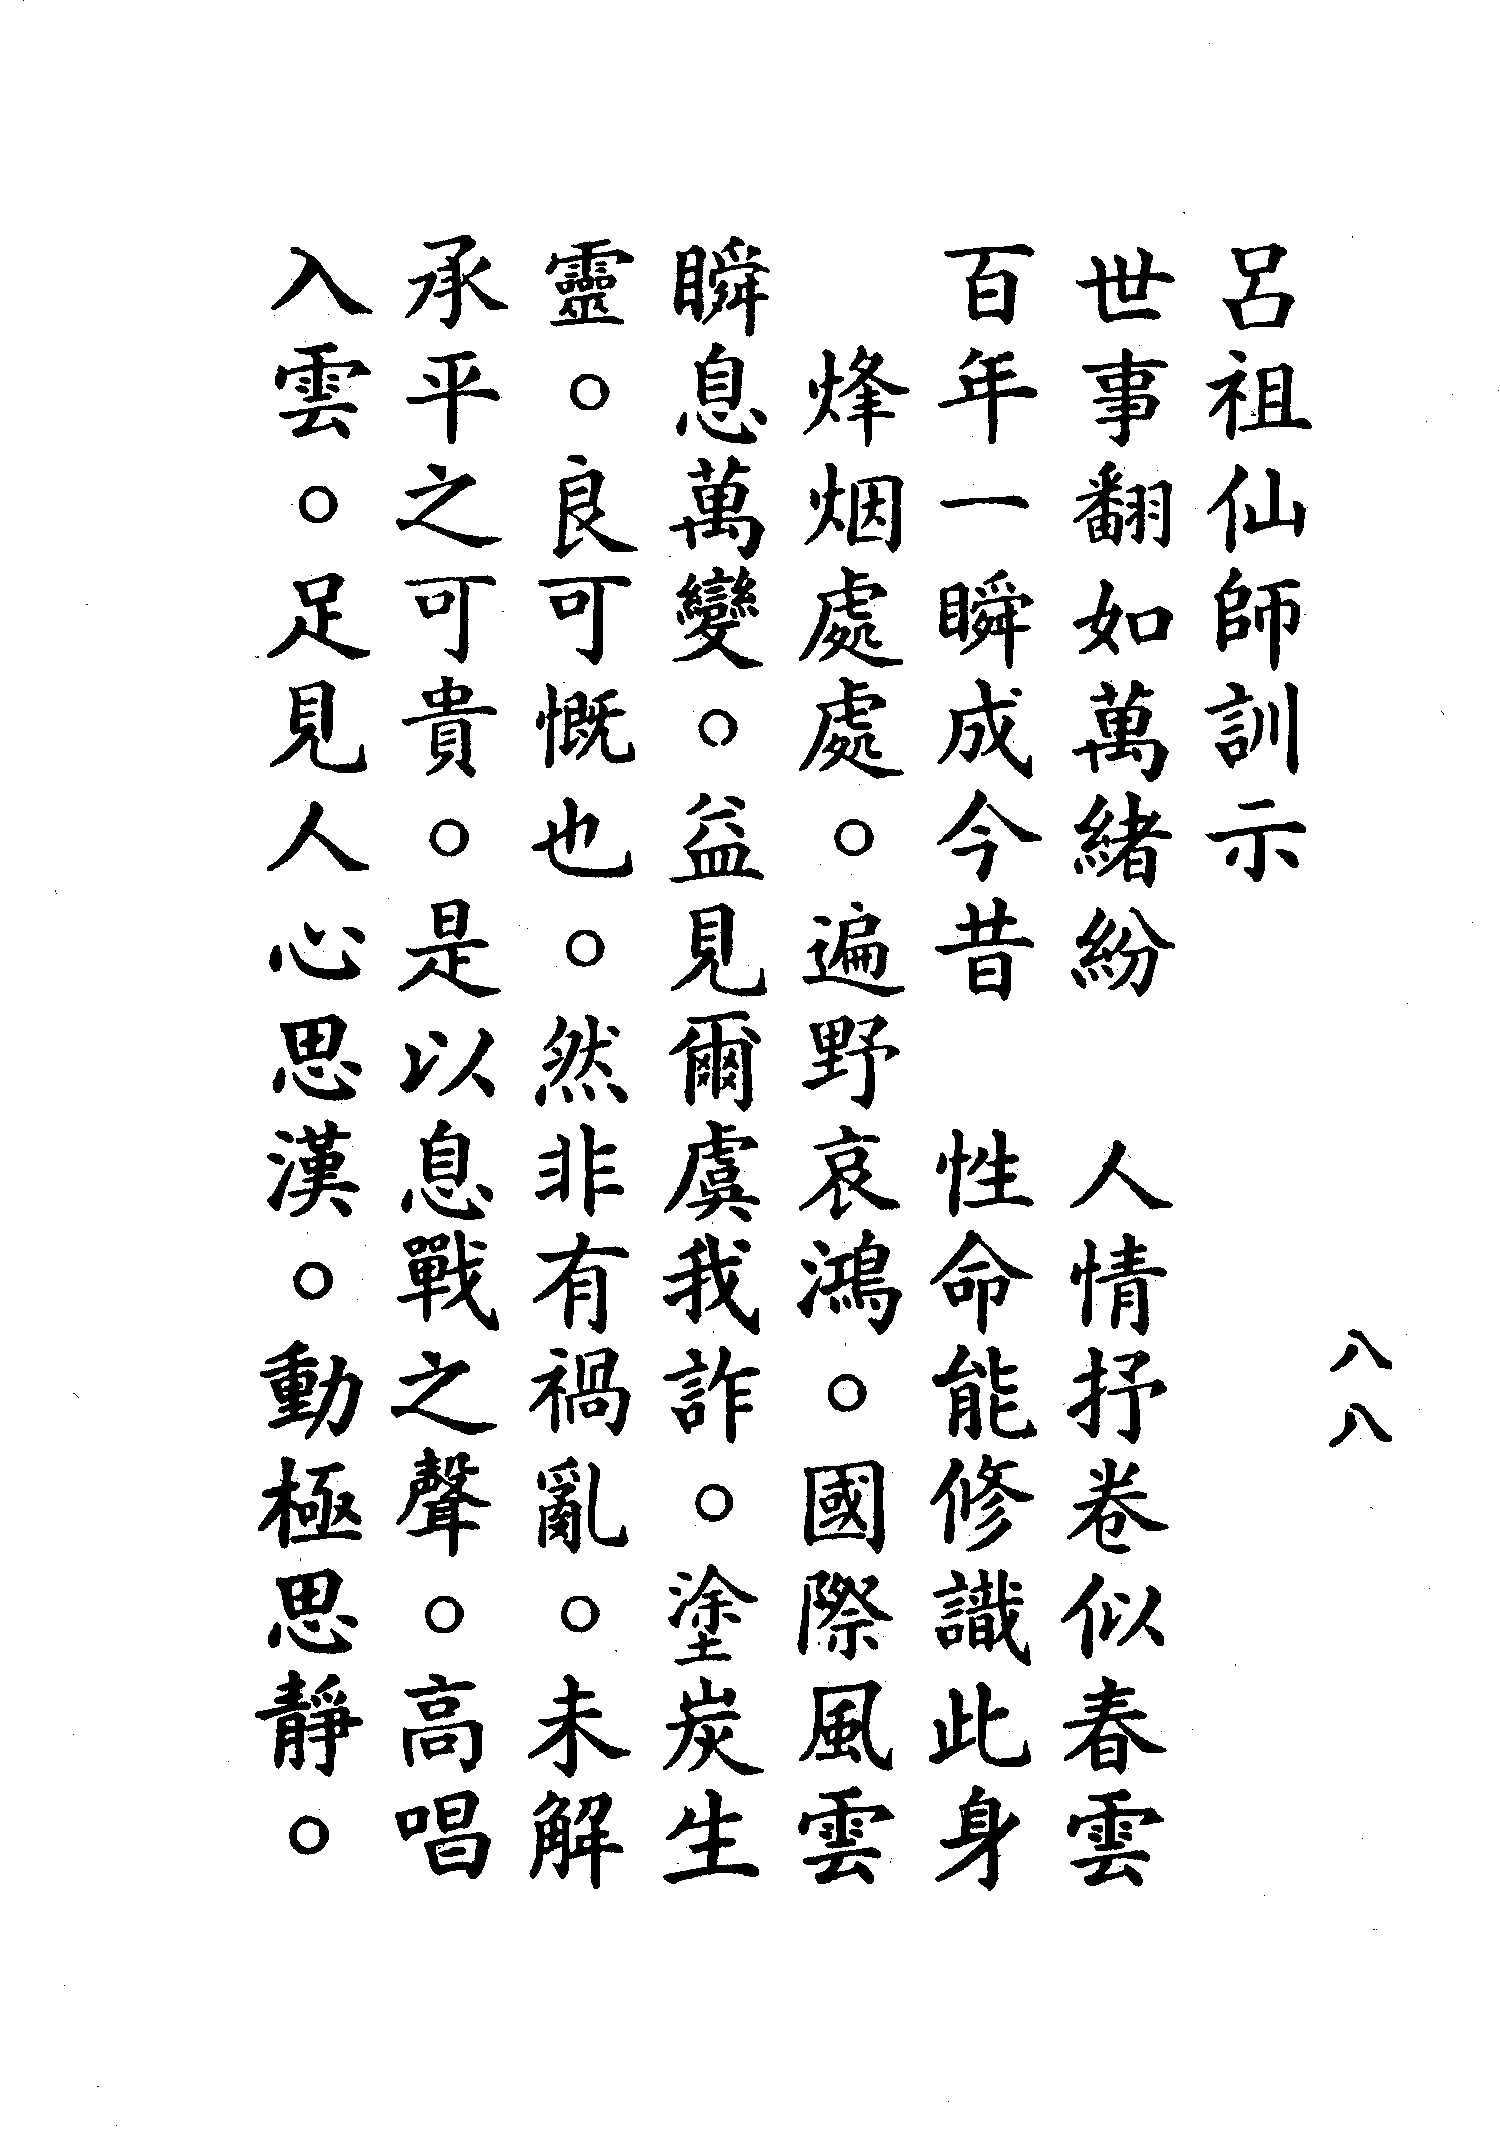 八八
呂祖仙師訓示
世事翻如萬緒紛　人情抒卷似春雲
百年一瞬成今昔　性命能修識此身
烽烟處處。遍野哀鴻。國際風雲
瞬息萬變。益見爾虞我詐。塗炭生
靈。良可慨也。然非有禍亂。未解
承平之可貴。是以息戰之聲。高唱
入雲。足見人心思漢。動極思靜。